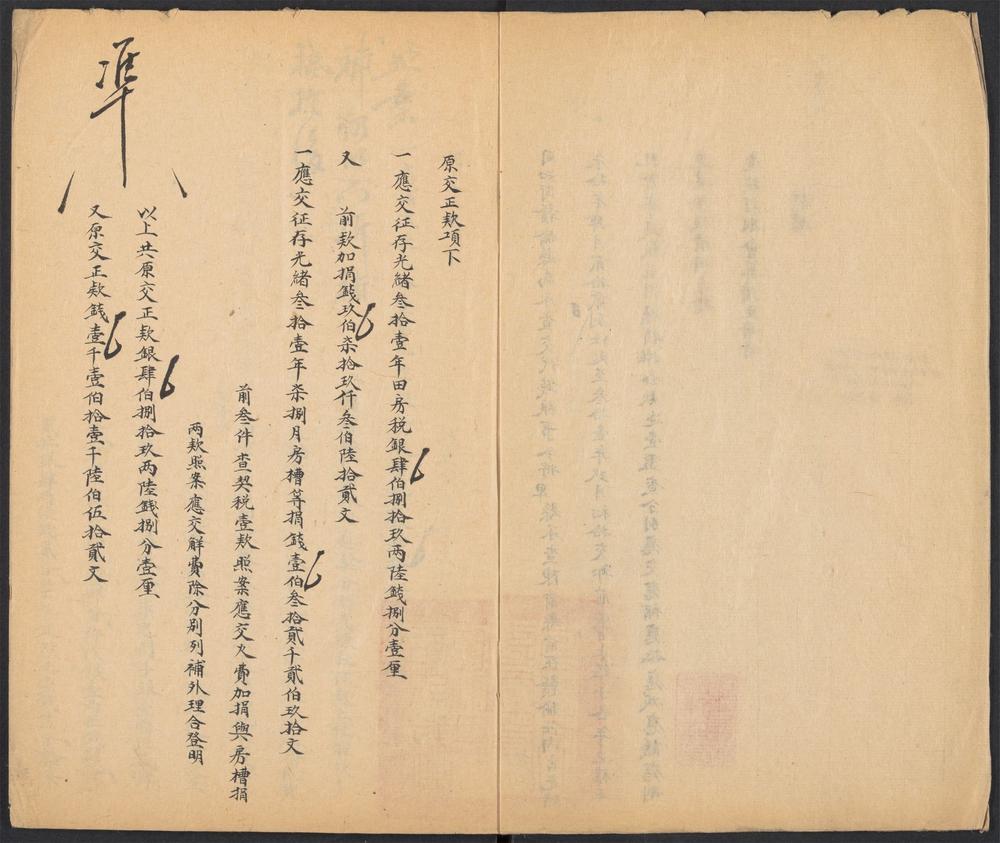 原交正欵項下
一應交征存光緒叁拾壹年田房税銀肆伯捌拾玖两陸錢捌分壹厘
又　前欵加捐錢玖伯柒拾玖仟叁伯陸拾貳文
一應交征存光緒叁拾壹年柒捌月房槽等捐錢壹伯叁拾貳千貳伯玖拾文
前叁件查契税壹欵照案應交火費加捐與房槽捐
两欵照案應交解費除分别列補外理合登明
以上共原交正欵銀肆伯捌拾玖两陸錢捌分壹厘
又原交正欵錢壹千壹伯拾壹千陸伯伍拾貳文
准